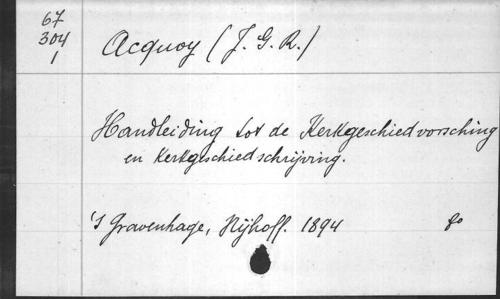 67
304
1
Acquoy (J. G. R.)
Handleiding tot de Kerkgeschiedvorsching
en Kerkgeschiedschrijving.
's Gravenhage, Nijhoff. 1894 8º